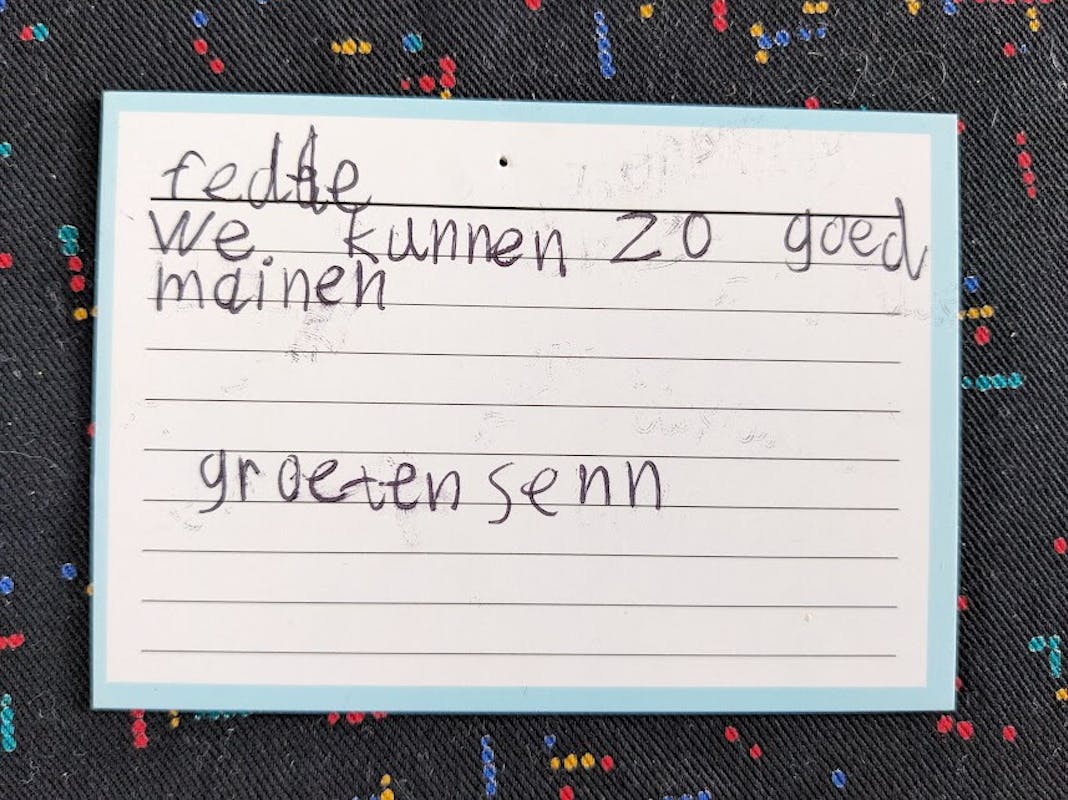 fedde
We kunnen zo goed
mainen
groeten senn